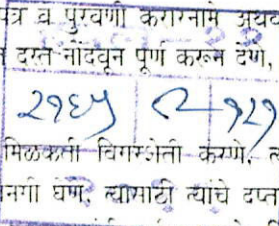 पत्र व पुरवणी करारनामे
दस्त नोंदवून पूर्ण करून देणे,
२१६५ १२१
मिळकती विगरशेती करणे,
नगी घेणे, त्यासाठी त्यांचे दप्त